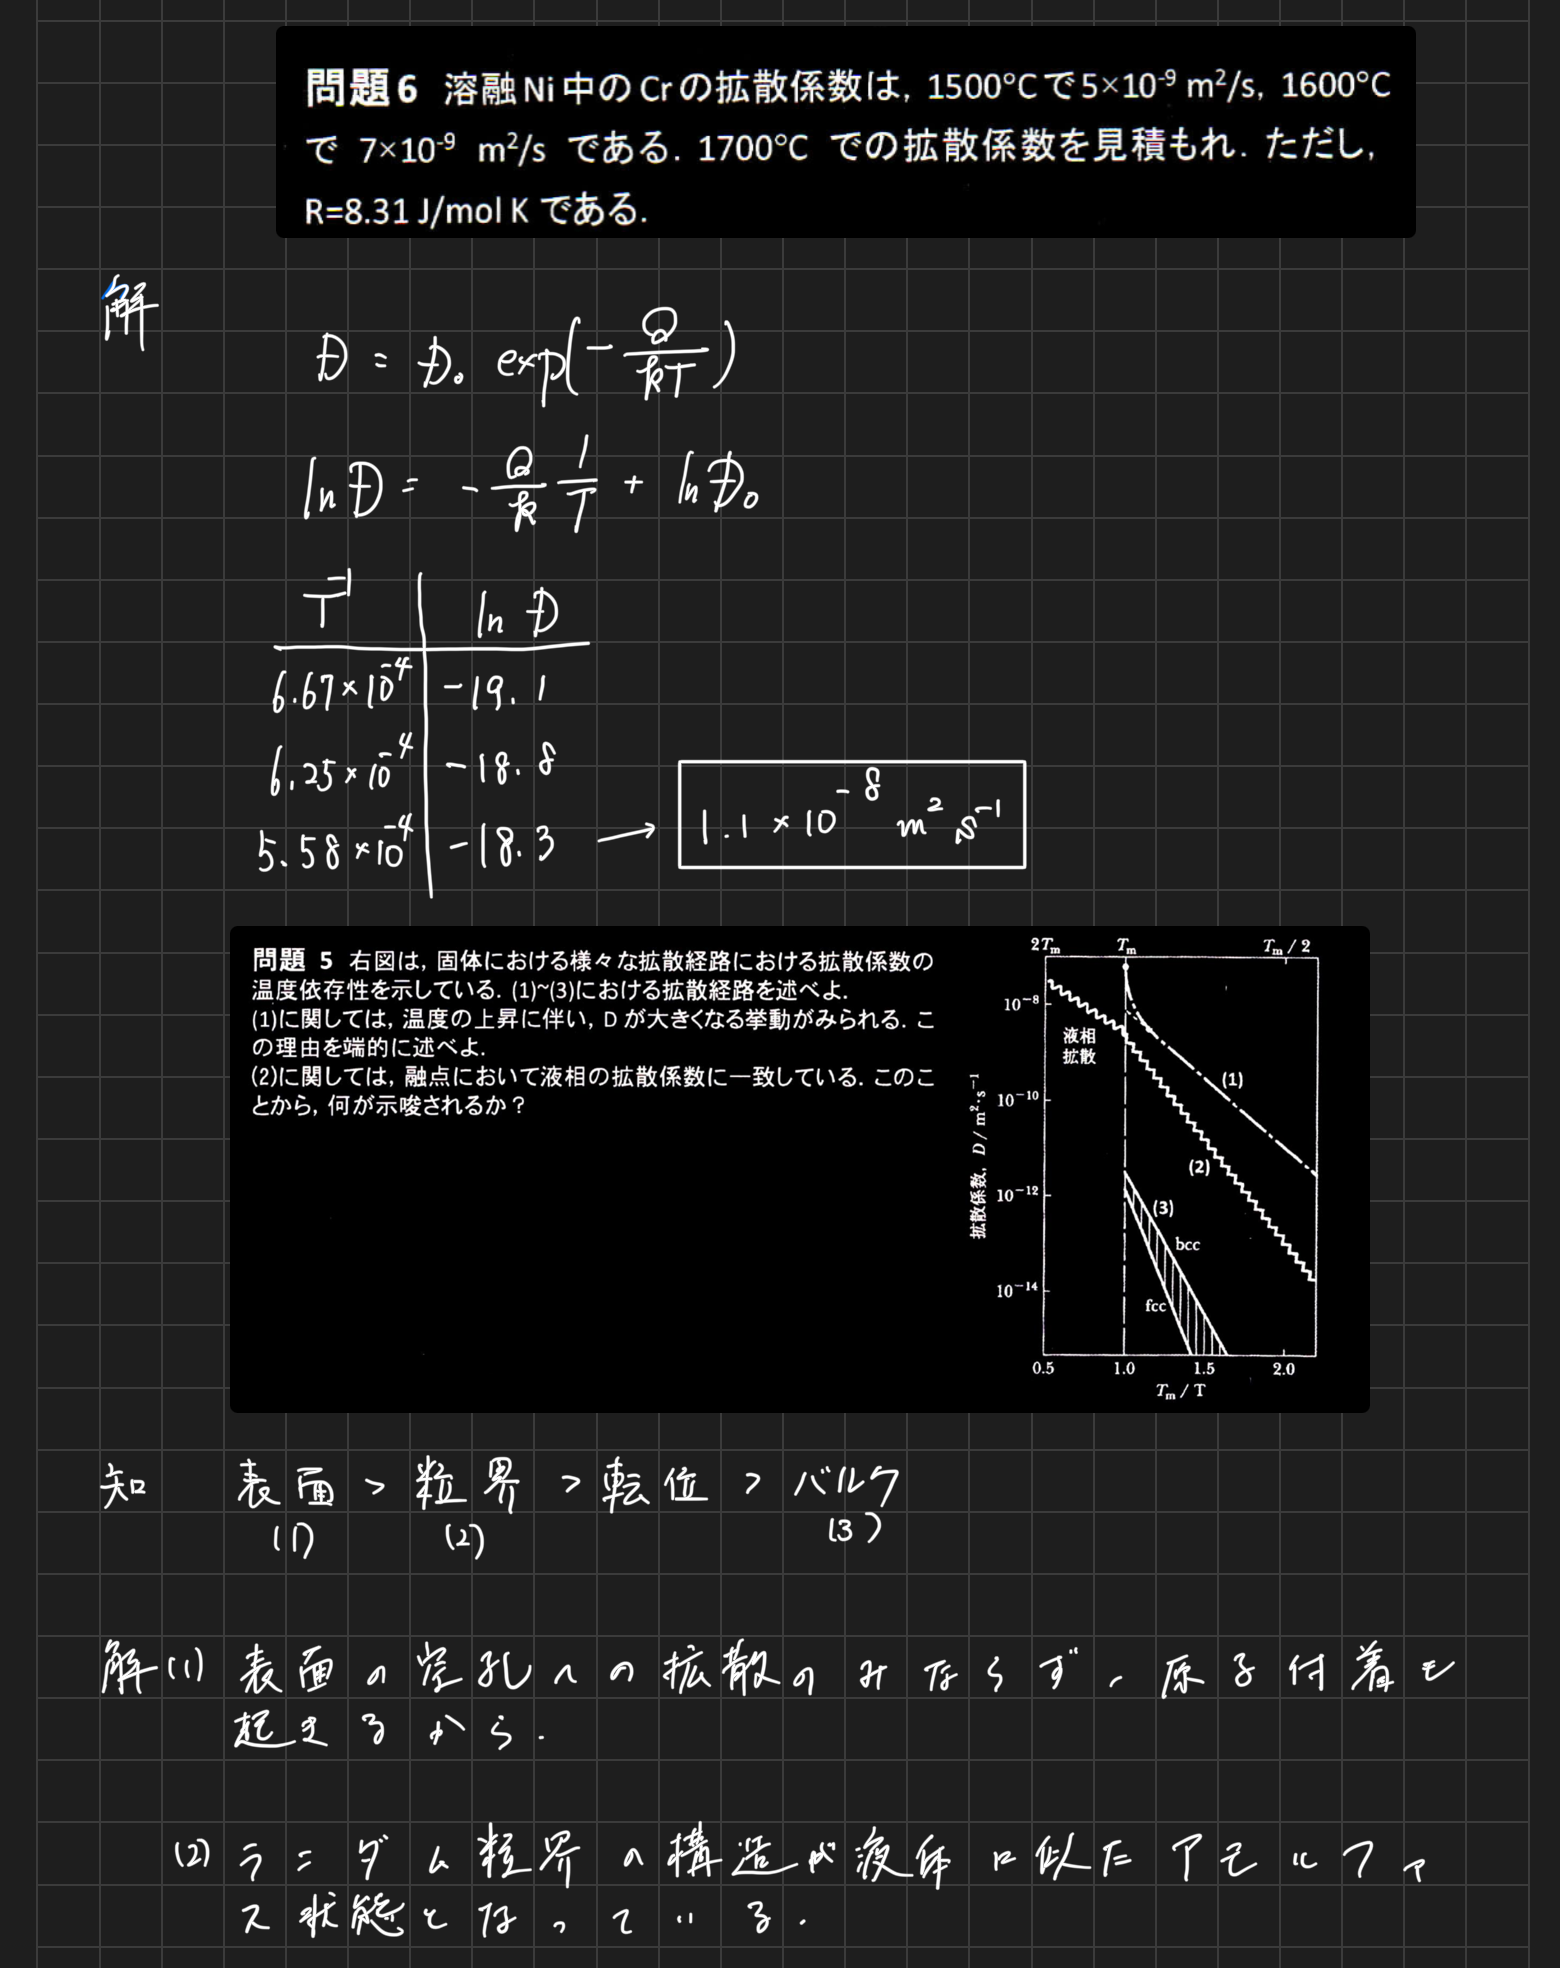 問題6 溶融Ni中のCrの拡散係数は, 1500°Cで5×10⁻⁹ m²/s, 1600°C
で 7×10⁻⁹ m²/s である. 1700°C での拡散係数を見積もれ. ただし,
R=8.31 J/mol K である.
解
D = D₀ exp(-Q/RT)
ln D = -Q/R 1/T + ln D₀
T⁻¹ ln D
6.67×10⁻⁴ -19.1
6.25×10⁻⁴ -18.8
5.58×10⁻⁴ -18.3 → 1.1×10⁻⁸ m² s⁻¹
問題 5 右図は, 固体における様々な拡散経路における拡散係数の
温度依存性を示している. (1)~(3)における拡散経路を述べよ.
(1)に関しては, 温度の上昇に伴い, D が大きくなる挙動がみられる. こ
の理由を端的に述べよ.
(2)に関しては, 融点において液相の拡散係数に一致している. このこ
とから, 何が示唆されるか?
2Tₘ Tₘ Tₘ / 2
10⁻⁸
液相
拡散
(1)
10⁻¹⁰
(2)
10⁻¹²
(3)
bcc
10⁻¹⁴
fcc
拡散係数, D / m²·s⁻¹
0.5 1.0 1.5 2.0
Tₘ / T
知 表面 > 粒界 > 転位 > バルク
(1) (2) (3)
解 (1) 表面の空孔への拡散のみならず、原子付着も
起きるから.
(2) ランダム粒界の構造が液体に似たアモルファ
ス状態となっている.